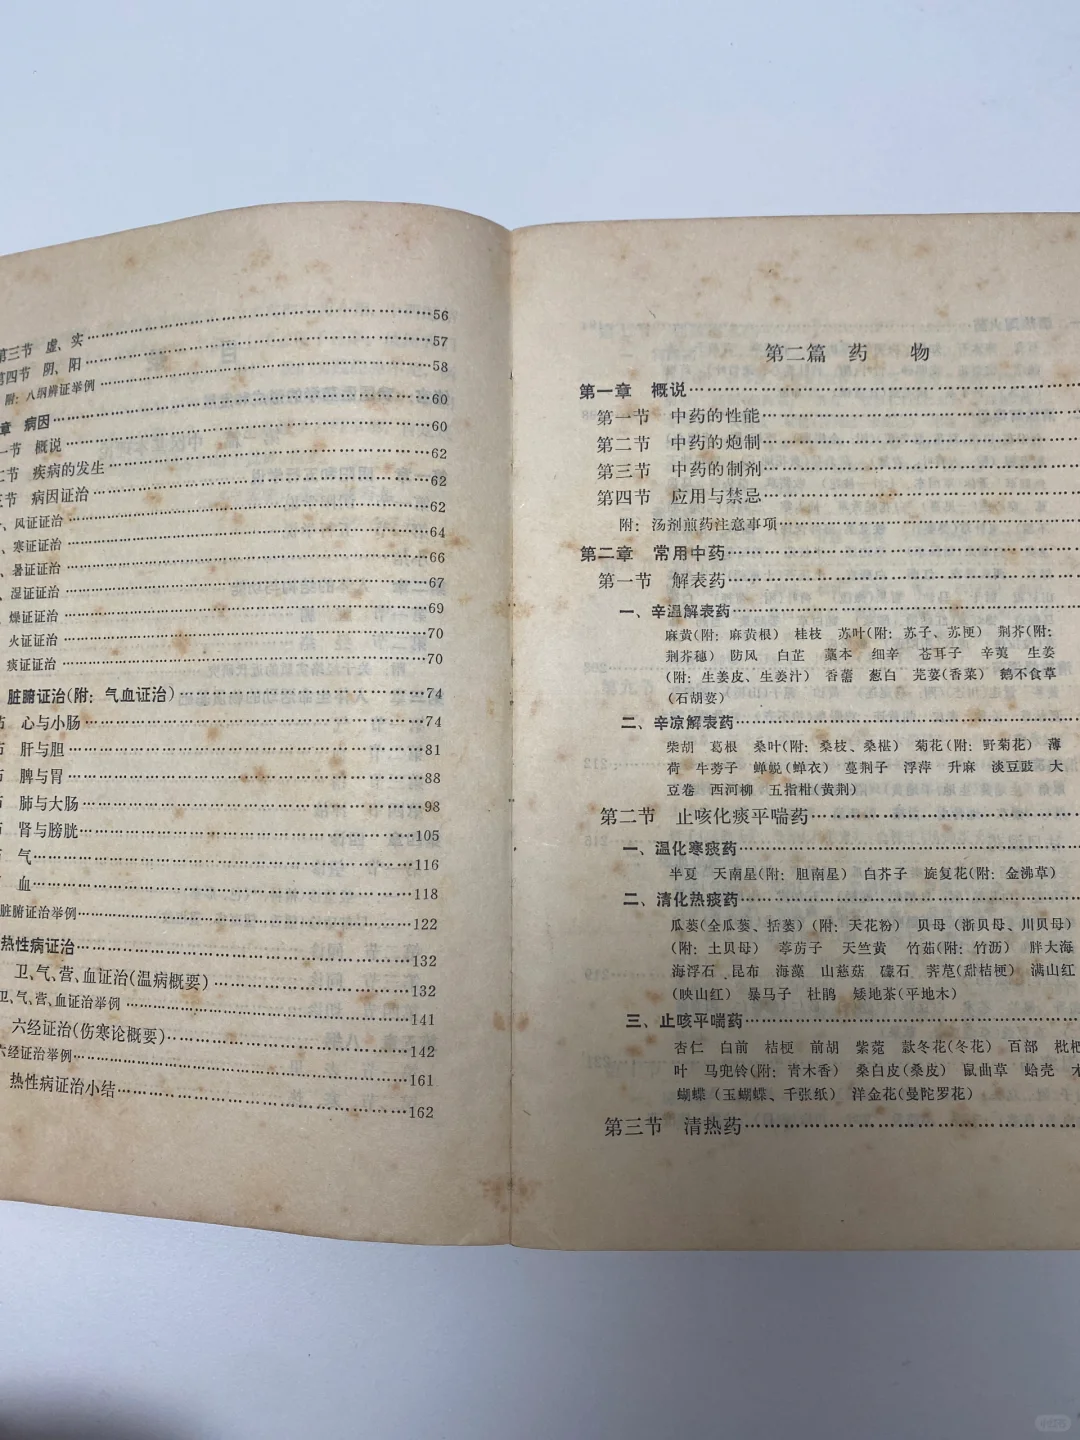 第三节 虚、实……56
第四节 阴、阳……57
附：八纲辨证举例……58
章 病因……60
一节 概说……60
二节 疾病的发生……62
三节 病因证治……62
、风证证治……62
、寒证证治……64
、暑证证治……66
、湿证证治……67
、燥证证治……69
火证证治……70
痰证证治……70
脏腑证治(附：气血证治)……74
节 心与小肠……74
节 肝与胆……81
节 脾与胃……88
节 肺与大肠……98
节 肾与膀胱……105
节 气……116
血……118
脏腑证治举例……122
热性病证治……132
卫、气、营、血证治(温病概要)……132
卫、气、营、血证治举例……141
六经证治(伤寒论概要)……142
六经证治举例……161
热性病证治小结……162
第二篇 药 物
第一章 概说……
第一节 中药的性能……
第二节 中药的炮制……
第三节 中药的制剂……
第四节 应用与禁忌……
附：汤剂煎药注意事项……
第二章 常用中药……
第一节 解表药……
一、辛温解表药……
麻黄(附：麻黄根) 桂枝 苏叶(附：苏子、苏梗) 荆芥(附：
荆芥穗) 防风 白芷 藁本 细辛 苍耳子 辛荑 生姜
(附：生姜皮、生姜汁) 香薷 葱白 芫荽(香菜) 鹅不食草
(石胡荽)
二、辛凉解表药……
柴胡 葛根 桑叶(附：桑枝、桑椹) 菊花(附：野菊花) 薄
荷 牛蒡子 蝉蜕(蝉衣) 蔓荆子 浮萍 升麻 淡豆豉 大
豆卷 西河柳 五指柑(黄荆)
第二节 止咳化痰平喘药……
一、温化寒痰药……
半夏 天南星(附：胆南星) 白芥子 旋复花(附：金沸草)
二、清化热痰药……
瓜蒌(全瓜蒌、括蒌)(附：天花粉) 贝母(浙贝母、川贝母)
(附：土贝母) 葶苈子 天竺黄 竹茹(附：竹沥) 胖大海
海浮石 昆布 海藻 山慈菇 礞石 荠苨(甜桔梗) 满山红
(映山红) 暴马子 杜鹃 矮地茶(平地木)
三、止咳平喘药……
杏仁 白前 桔梗 前胡 紫菀 款冬花(冬花) 百部 枇杷
叶 马兜铃(附：青木香) 桑白皮(桑皮) 鼠曲草 蛤壳 木
蝴蝶(玉蝴蝶、千张纸) 洋金花(曼陀罗花)
第三节 清热药……